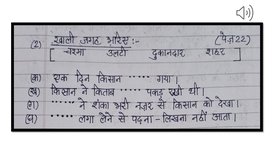 (2) खाली जगह भरिए:- (पेज 22)
[ चश्मा उल्टी दुकानदार शहर ]
(क) एक दिन किसान ...... गया।
(ख) किसान ने किताब ...... पकड़ रखी थी।
(ग) ...... ने शंका भरी नज़र से किसान को देखा।
(घ) ...... लगा लेने से पढ़ना-लिखना नहीं आता।